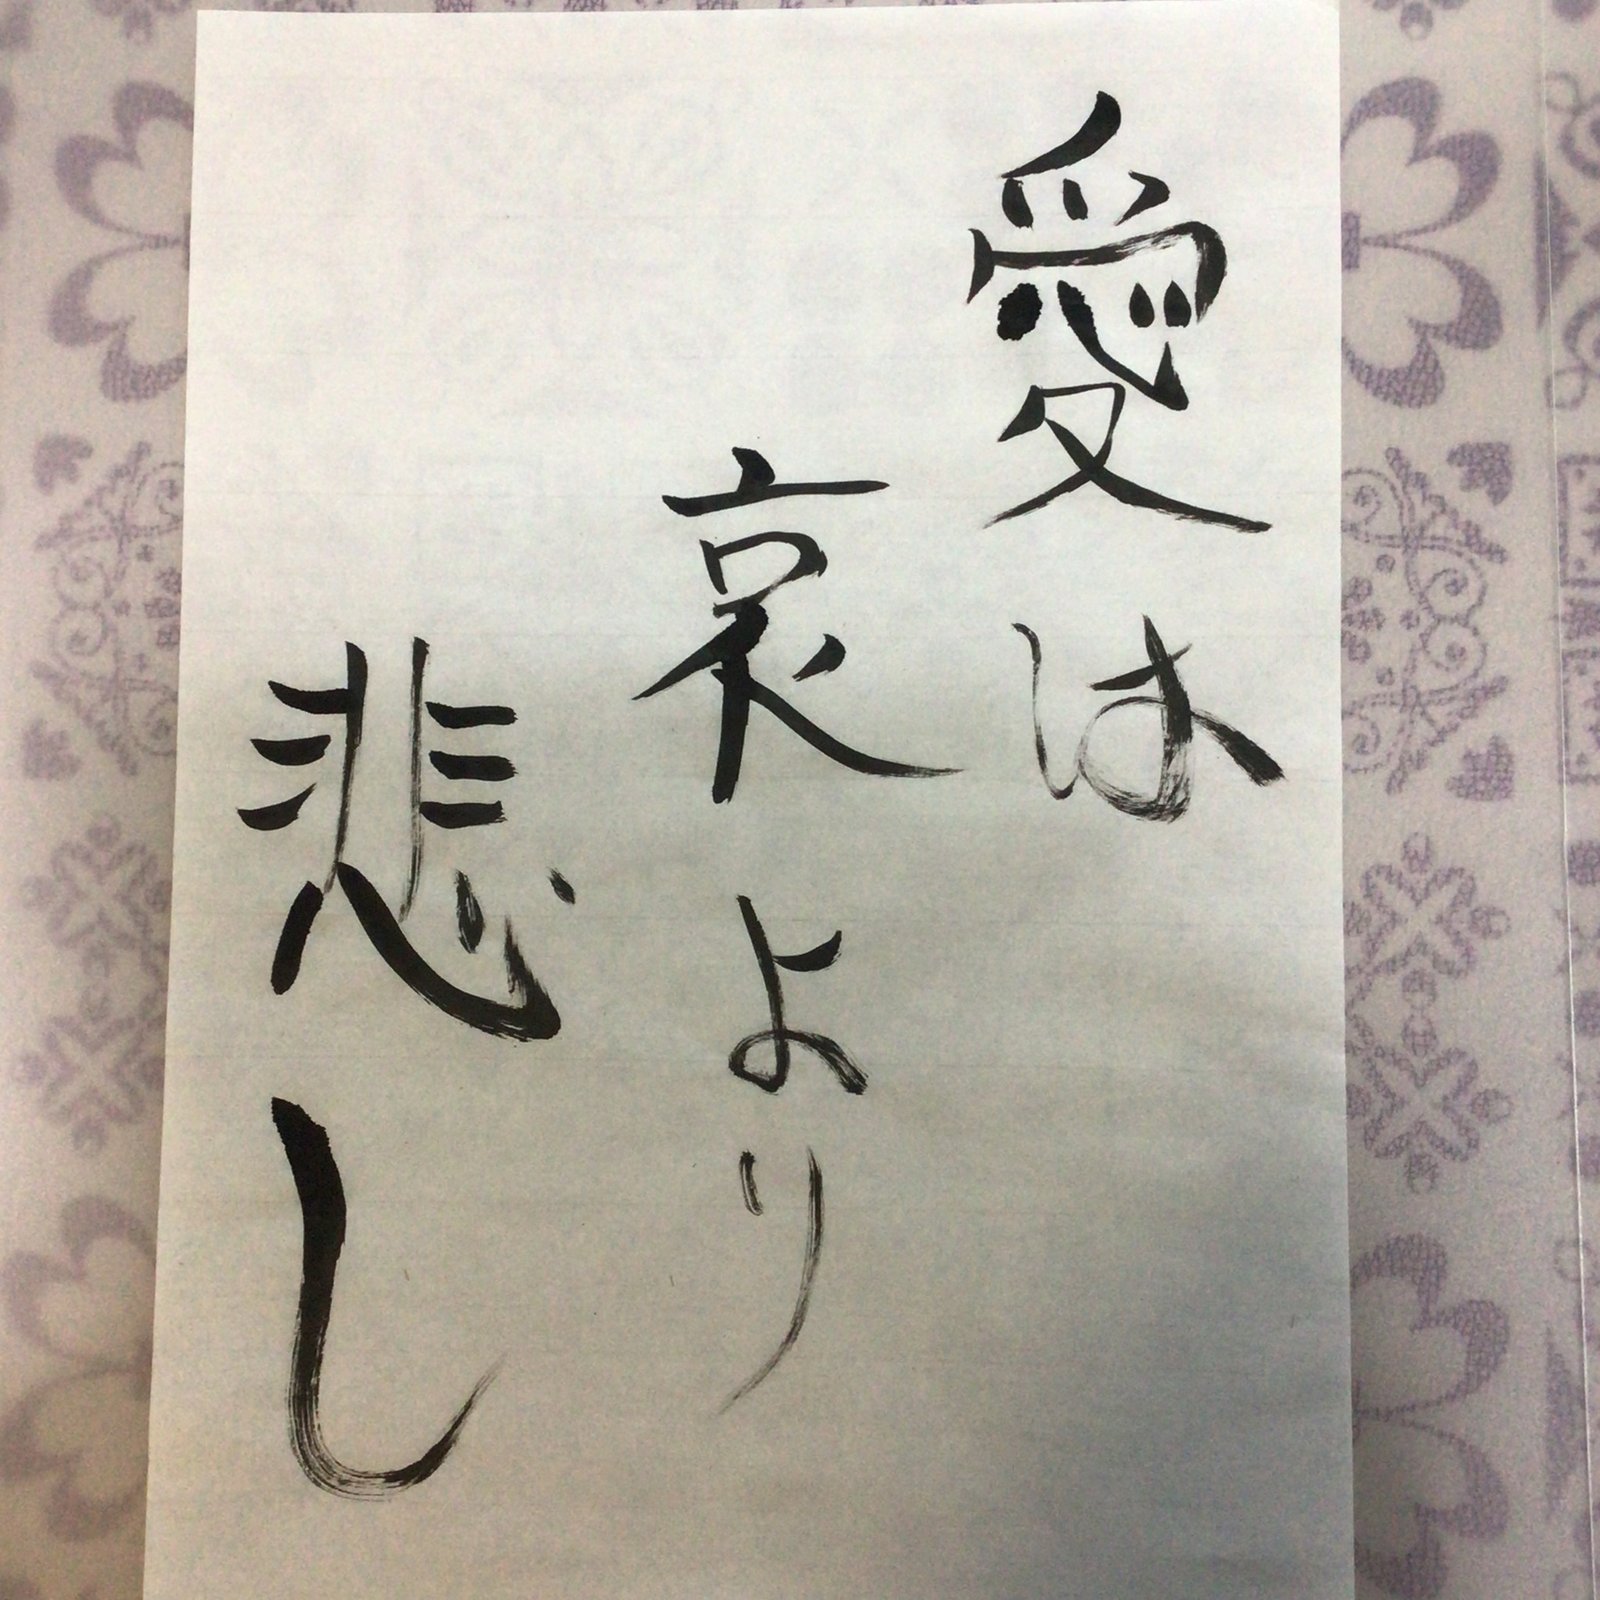 愛は
哀より
悲し